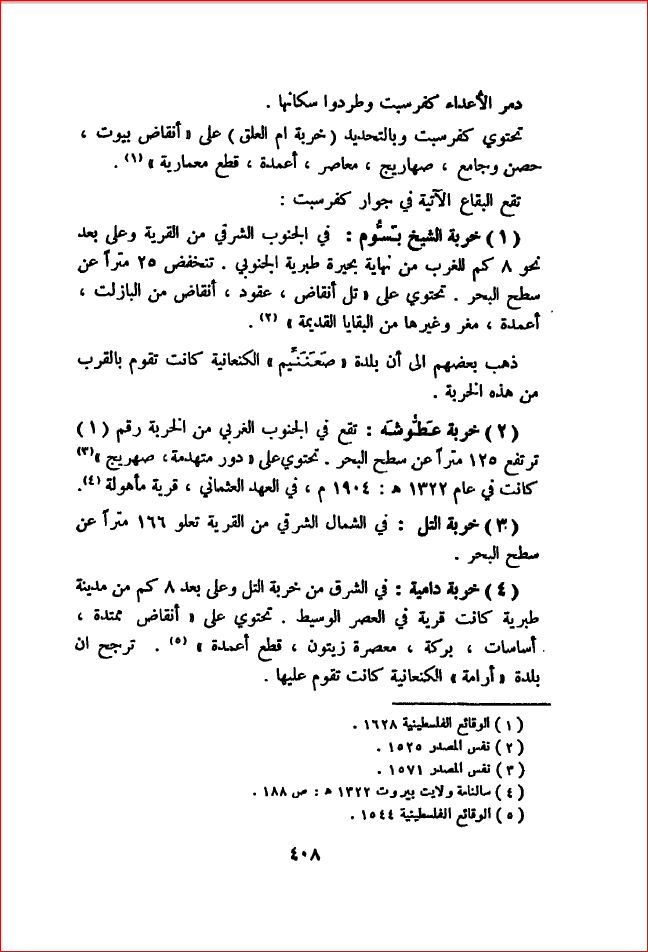 دمر الأعداء كفرسبت وطردوا سكانها .
تحتوي كفرسبت وبالتحديد ( خربة ام العلق ) على « أنقاض بيوت ،
حصن وجامع ، صهاريج ، معاصر ، أعمدة ، قطع معمارية » (١) .
تقع البقاع الآتية في جوار كفرسبت :
( ١ ) خربة الشيخ بَسُّوم : في الجنوب الشرقي من القرية وعلى بعد
نحو ٨ كم للغرب من نهاية بحيرة طبرية الجنوبي . تنخفض ٢٥ متراً عن
سطح البحر . تحتوي على « تل أنقاض ، عقود ، أنقاض من البازلت ،
أعمدة ، مغر وغيرها من البقايا القديمة » (٢) .
ذهب بعضهم الى أن بلدة « صَعَنَنِّيم » الكنعانية كانت تقوم بالقرب
من هذه الخربة .
( ٢ ) خربة عَطُّوشَه : تقع في الجنوب الغربي من الخربة رقم ( ١ )
ترتفع ١٢٥ متراً عن سطح البحر . تحتوي على « دور متهدمة ، صهريج » (٣)
كانت في عام ١٣٢٢ ه : ١٩٠٤ م ، في العهد العثماني ، قرية مأهولة (٤).
( ٣ ) خربة التل : في الشمال الشرقي من القرية تعلو ١٦٦ متراً عن
سطح البحر .
( ٤ ) خربة دامية : في الشرق من خربة التل وعلى بعد ٨ كم من مدينة
طبرية كانت قرية في العصر الوسيط . تحتوي على « أنقاض ممتدة ،
أساسات ، بركة ، معصرة زيتون ، قطع أعمدة » (٥) . ترجح ان
بلدة « أرامة » الكنعانية كانت تقوم عليها .
( ١ ) الوقائع الفلسطينية ١٦٢٨ .
( ٢ ) نفس المصدر ١٥٢٥ .
( ٣ ) نفس المصدر ١٥٧١ .
( ٤ ) سالنامة ولايت بيروت ١٣٢٢ ه : ص ١٨٨ .
( ٥ ) الوقائع الفلسطينية ١٥٤٤ .
٤٠٨